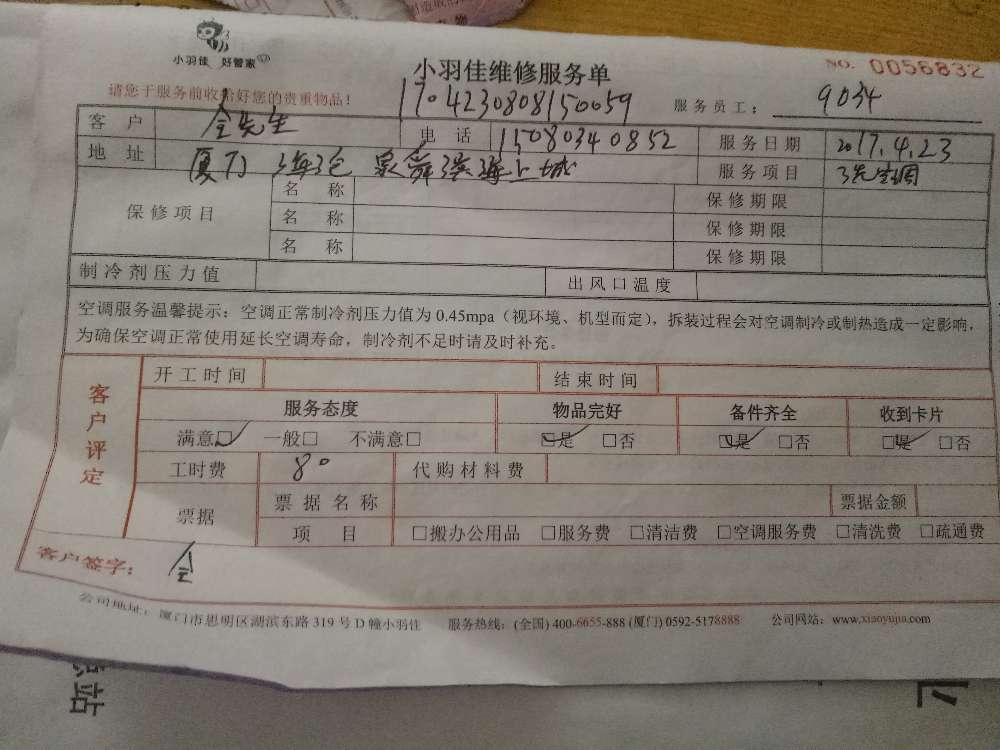 小羽佳 好管家
小羽佳维修服务单
NO. 0056832
请您于服务前收拾好您的贵重物品！
1704230808150059
服务员工： 9034
客户 全先生 电话 15080340852 服务日期 2017.4.23
地址 厦门 海沧 泉舜滨海上城 服务项目 洗空调
保修项目 名称 保修期限
名称 保修期限
名称 保修期限
制冷剂压力值 出风口温度
空调服务温馨提示：空调正常制冷剂压力值为 0.45mpa（视环境、机型而定），拆装过程会对空调制冷或制热造成一定影响，
为确保空调正常使用延长空调寿命，制冷剂不足时请及时补充。
客户评定
开工时间 结束时间
服务态度 物品完好 备件齐全 收到卡片
满意☑ 一般□ 不满意□ ☑是 □否 ☑是 □否 ☑是 □否
工时费 80 代购材料费
票据 票据名称 票据金额
项目 □搬办公用品 □服务费 □清洁费 □空调服务费 □清洗费 □疏通费
客户签字： 全
公司地址：厦门市思明区湖滨东路 319 号 D 幢小羽佳 服务热线：(全国) 400-6655-888 (厦门) 0592-5178888 公司网站：www.xiaoyujia.com
站